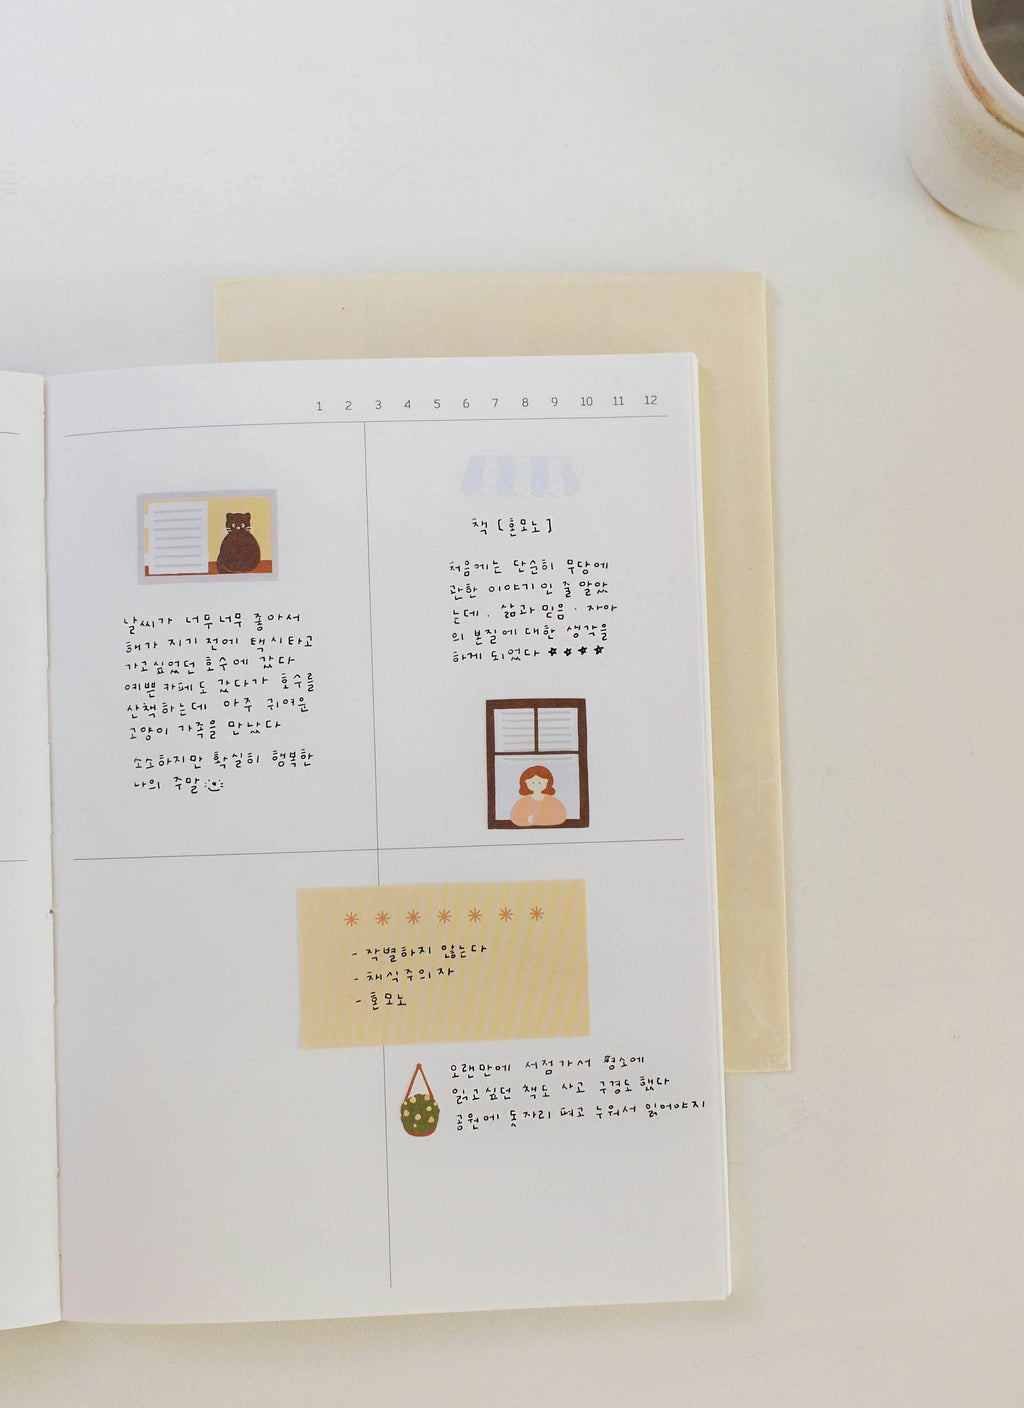 1 2 3 4 5 6 7 8 9 10 11 12
날씨가 너무너무 좋아서
해가 지기 전에 택시타고
가고싶었던 호수에 갔다
예쁜 카페도 갔다가 호수를
산책하는데 아주 귀여운
고양이 가족을 만났다
소소하지만 확실히 행복한
나의 주말
책 [혼모노]
처음에는 단순히 무당에
관한 이야기인 줄 알았
는데, 삶과 믿음·자아
의 본질에 대한 생각을
하게 되었다 ★★★★
- 작별하지 않는다
- 채식주의자
- 혼모노
오랜만에 서점가서 평소에
읽고싶던 책도 사고 구경도 했다
공원에 돗자리 펴고 누워서 읽어야지